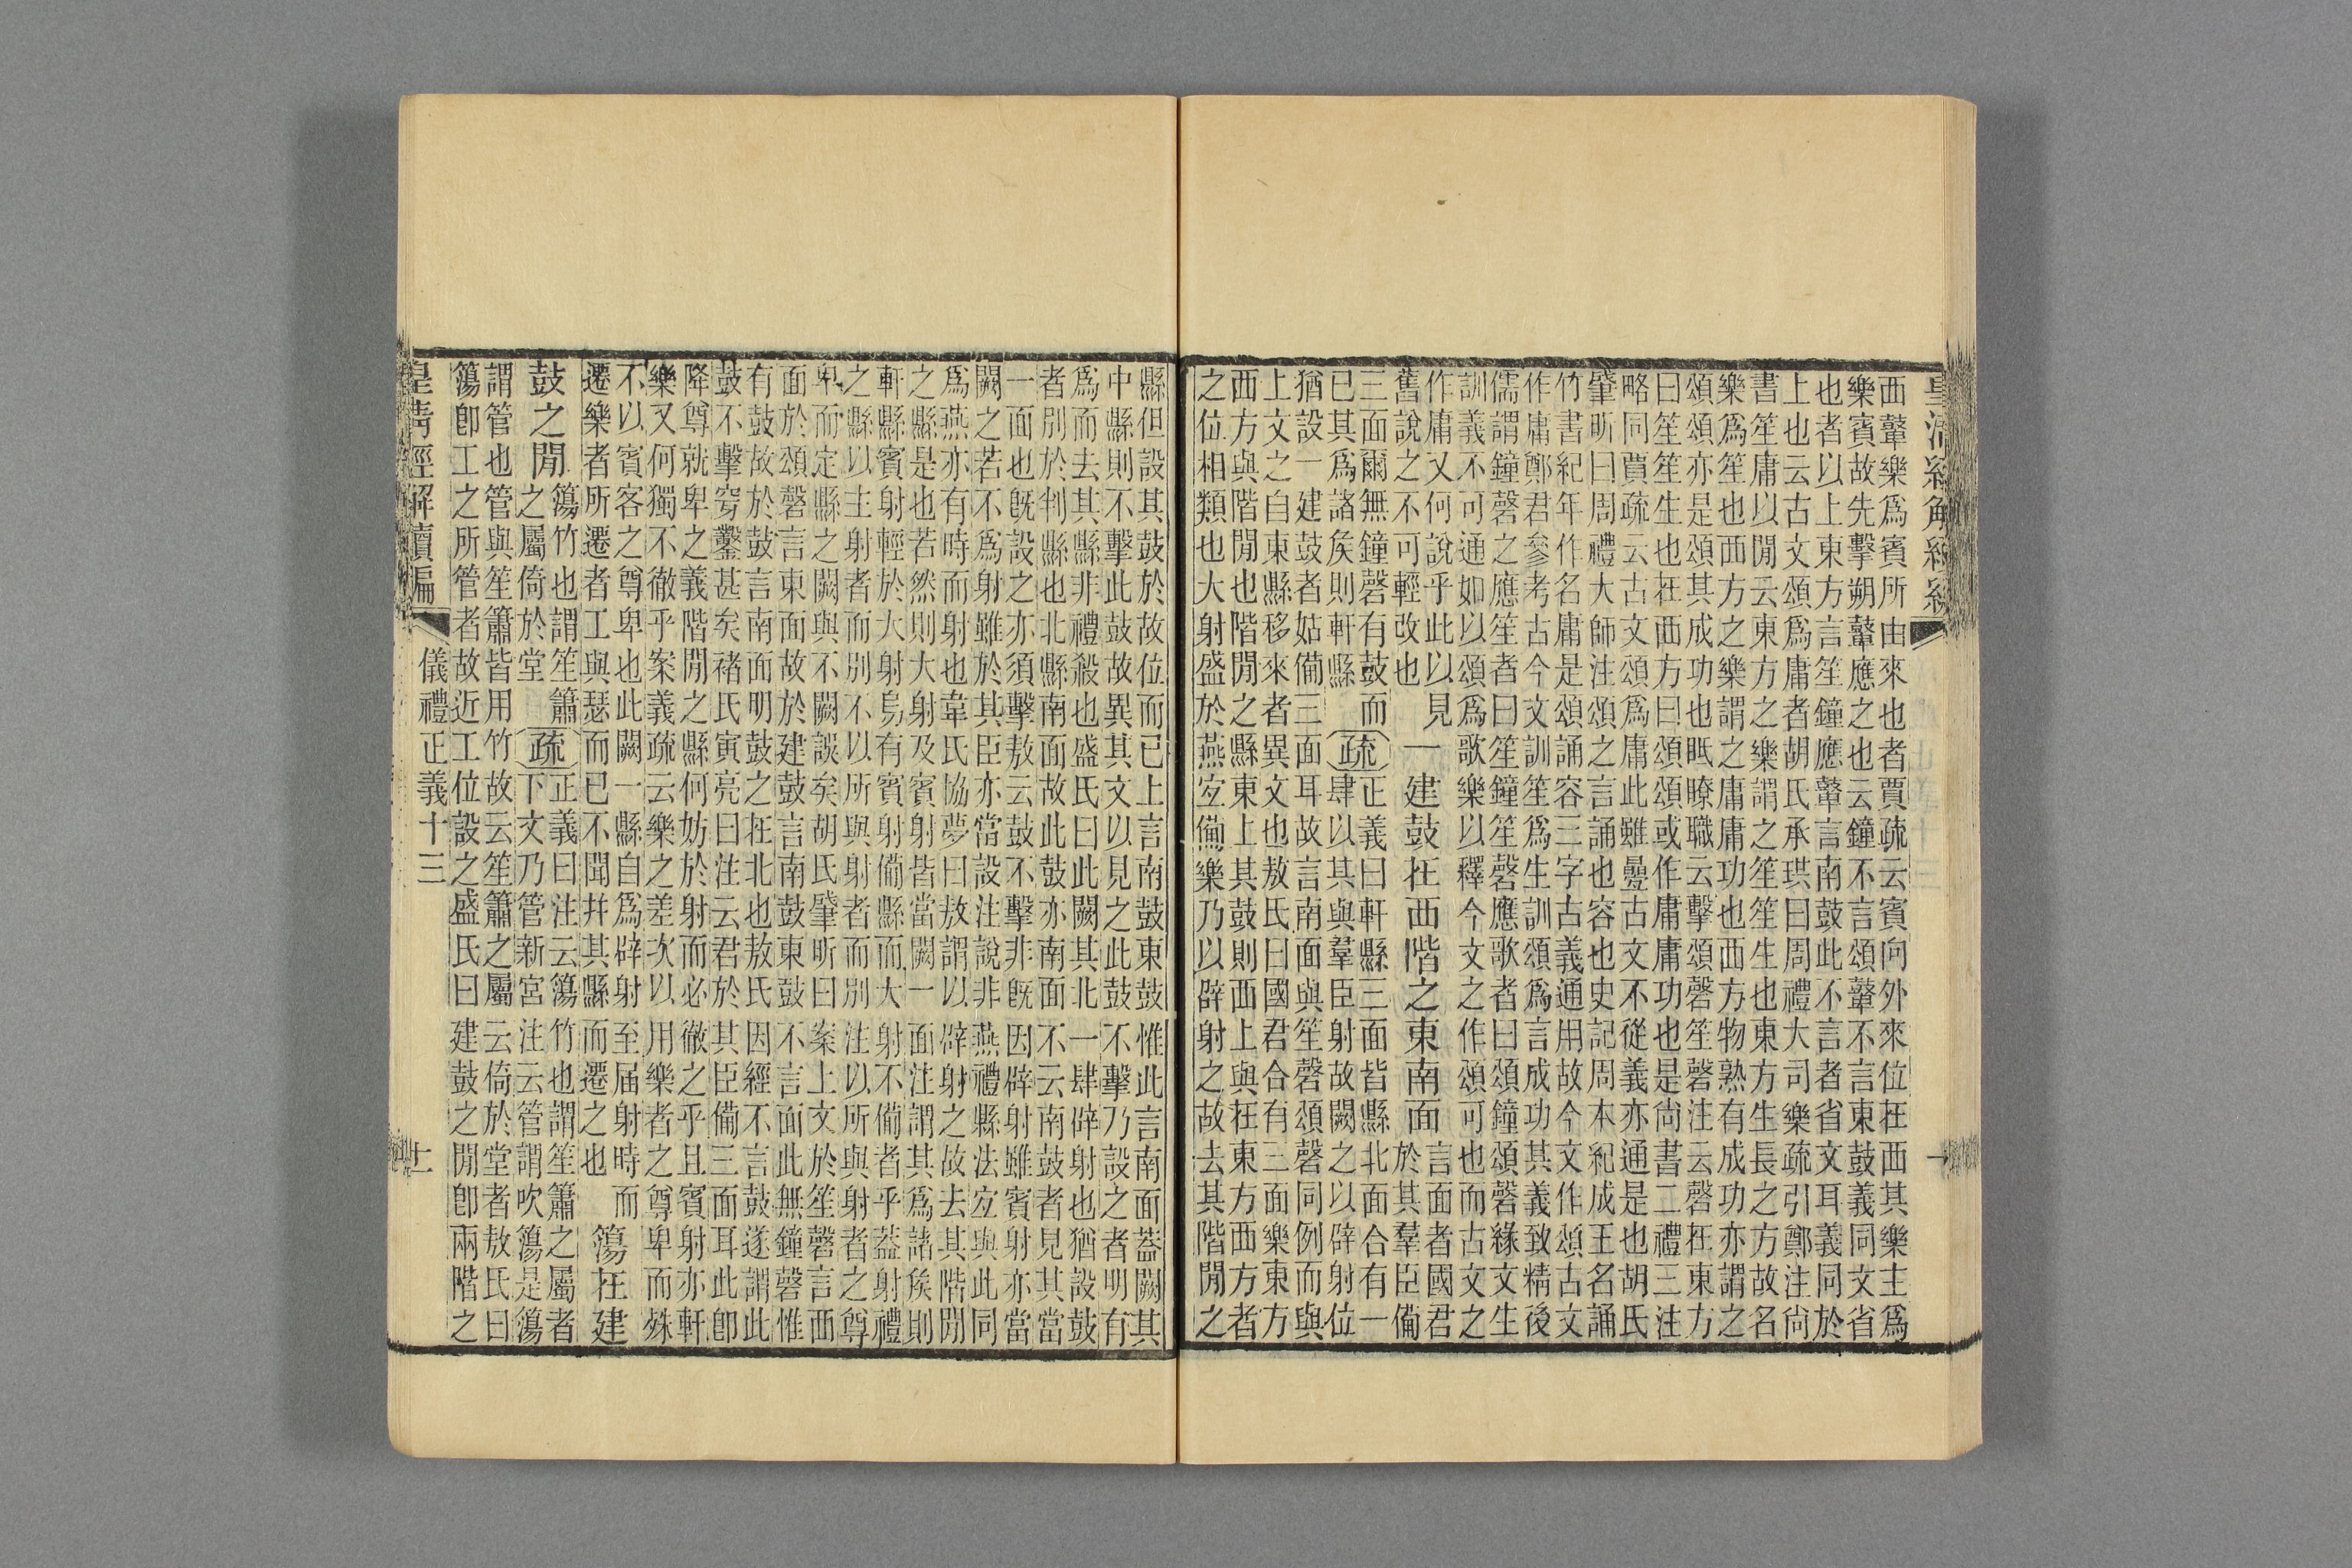 西鼙樂爲賓所由來也者賈疏云賓向外來位在西其樂主爲
樂賓故先擊朔鼙應之也云鐘不言頌鼙不言東鼓義同文省
也者以上東方言笙鐘應鼙言南鼓此不言者省文耳義同於
上也云古文頌爲庸者胡氏承珙曰周禮大司樂疏引鄭注尙
書笙庸以閒云東方之樂謂之笙笙生也東方生長之方故名
樂爲笙也西方之樂謂之庸庸功也西方物熟有成功亦謂之
頌頌亦是頌其成功也眡瞭職云擊頌磬笙磬注云磬在東方
曰笙笙生也在西方曰頌頌或作庸庸功也是尙書二禮三注
略同賈疏云古文頌爲庸此雖疊古文不從義亦通是也胡氏
肇昕曰周禮大師注頌之言誦也容也史記周本紀成王名誦
竹書紀年作名庸是頌誦容三字古義通用故今文作頌古文
作庸鄭君參考古今文訓笙爲生訓頌爲言成功其義致精後
儒謂鐘磬之應笙者曰笙鐘笙磬應歌者曰頌鐘頌磬緣文生
訓義不可通如以頌爲歌樂以釋今文之作頌可也而古文之
作庸又何說乎此以見
舊說之不可輕改也
一建鼓在西階之東南面
言面者國君
於其羣臣備
三面爾無鐘磬有鼓而
已其爲諸矦則軒縣
疏
正義曰軒縣三面皆縣北面合有一
肆以其與羣臣射故闕之以辟射位
猶設一建鼓者姑備三面耳故言南面與笙磬頌磬同例而與
上文之自東縣移來者異文也敖氏曰國君合有三面樂東方
西方與階閒也階閒之縣東上其鼓則西上與在東方西方者
之位相類也大射盛於燕宐備樂乃以辟射之故去其階閒之
縣但設其鼓於故位而已上言南鼓東鼓惟此言南面葢闕其
中縣則不擊此鼓故異其文以見之此鼓不擊乃設之者明有
爲而去其縣非禮殺也盛氏曰此闕其北一肆辟射也猶設鼓
者別於判縣也北縣南面故此鼓亦南面不云南鼓者見其當
一面也旣設之亦須擊敖云鼓不擊非旣因辟射雖賓射亦當
闕之若不爲射雖於其臣亦當設注說非燕禮縣法宐與此同
爲燕亦有時而射也韋氏協夢曰敖謂以辟射之故去其階閒
之縣是也若然則大射及賓射皆當闕一面注謂其爲諸矦則
軒縣賓射輕於大射烏有賓射備縣而大射不備者乎葢射禮
之縣以主射者而別不以所與射者而別注以所與射者之尊
卑而定縣之闕與不闕誤矣胡氏肇昕曰案上文於笙磬言西
面於頌磬言東面故於建鼓言南鼓東鼓不言面此無鐘磬惟
有鼓故於鼓言南面明鼓之在北也敖氏因經不言鼓遂謂此
鼓不擊穿鑿甚矣褚氏寅亮曰注云君於其臣備三面耳此卽
降尊就卑之義階閒之縣何妨於射而必徹之乎且賓射亦軒
樂又何獨不徹乎案義疏云樂之差次以用樂者之尊卑而殊
不以賓客之尊卑也此闕一縣自爲辟射至届射時而
遷樂者所遷者工與瑟而已不聞幷其縣而遷之也
簜在建
鼓之閒
簜竹也謂笙簫
之屬倚於堂
疏
正義曰注云簜竹也謂笙簫之屬者
下文乃管新宮注云管謂吹簜是簜
謂管也管與笙簫皆用竹故云笙簫之屬云倚於堂者敖氏曰
簜卽工之所管者故近工位設之盛氏曰建鼓之閒卽兩階之
皇清經解續編 儀禮正義十三